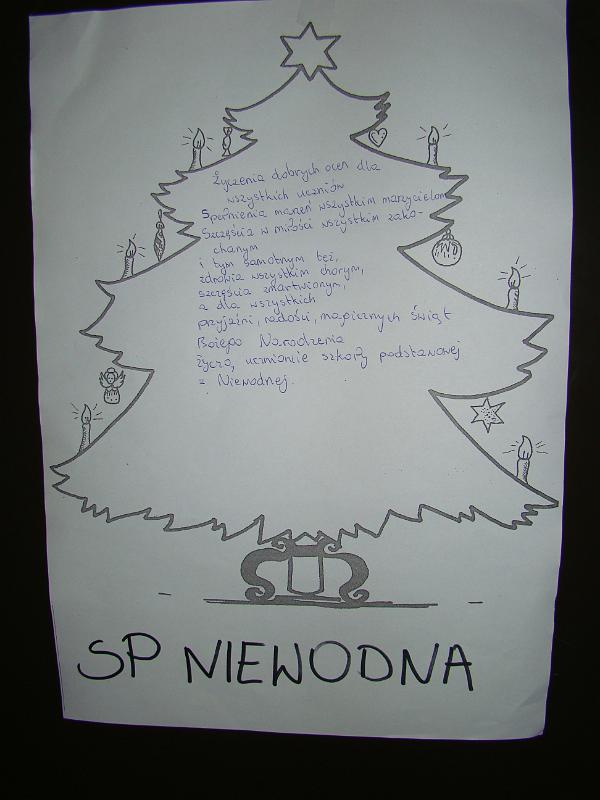 Życzenia dobrych ocen dla
wszystkich uczniów
Spełnienia marzeń wszystkim marzycielom
Szczęścia w miłości wszystkim zako-
chanym
i tym samotnym też,
zdrowia wszystkim chorym,
szczęścia zmartwionym,
a dla wszystkich
przyjaźni, radości, magicznych świąt
Bożego Narodzenia
życzą, uczniowie szkoły podstawowej
z Niewodnej.
SP NIEWODNA